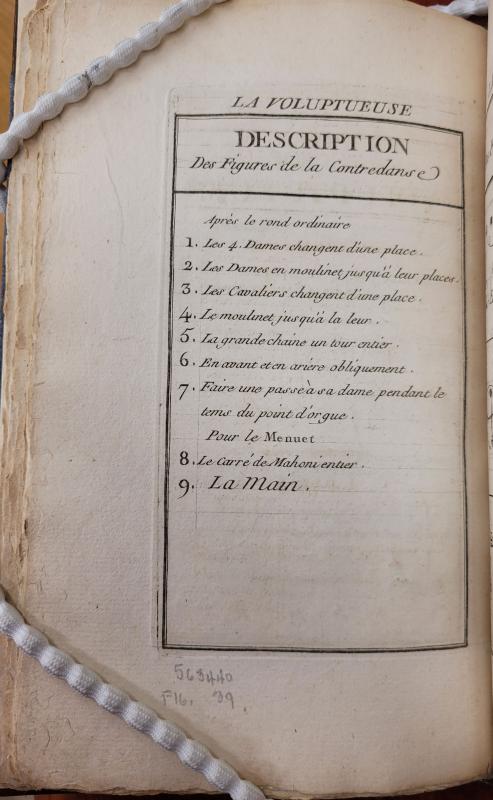 LA VOLUPTUEUSE
DESCRIPTION
Des Figures de la Contredanse
Aprés le rond ordinaire
1. Les 4. Dames changent d'une place.
2. Les Dames en moulinet jusqu'à leur places.
3. Les Cavaliers changent d'une place.
4. Le moulinet jusqu'à la leur.
5. La grande chaine un tour entier.
6. En avant et en ariere obliquement.
7. Faire une passe à sa dame pendant le
tems du point d'orgue.
Pour le Menuet
8. Le Carré de Mahoni entier.
9. La Main.
563440
F16. 39.